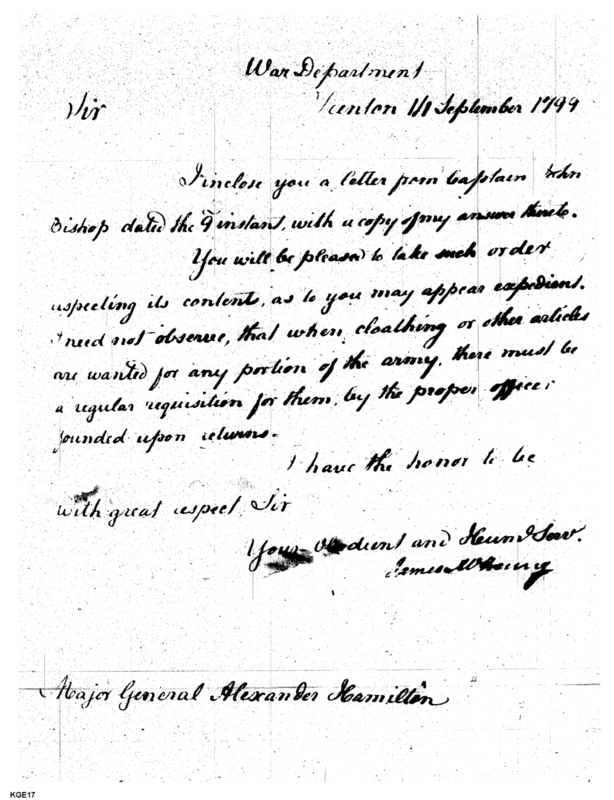 War Department
Sir Trenton 11 September 1799
I inclose you a letter from Captain John
Bishop dated the 9 instant, with a copy of my answer thereto.
You will be pleased to take such order
respecting its contents, as to you may appear expedient.
I need not observe, that when cloathing or other articles
are wanted for any portion of the army, there must be
a regular requisition for them, by the proper officer
founded upon returns.
I have the honor to be
with great respect, Sir
Your Obedient and Hum. Serv.
James McHenry
Major General Alexander Hamilton
KGE17